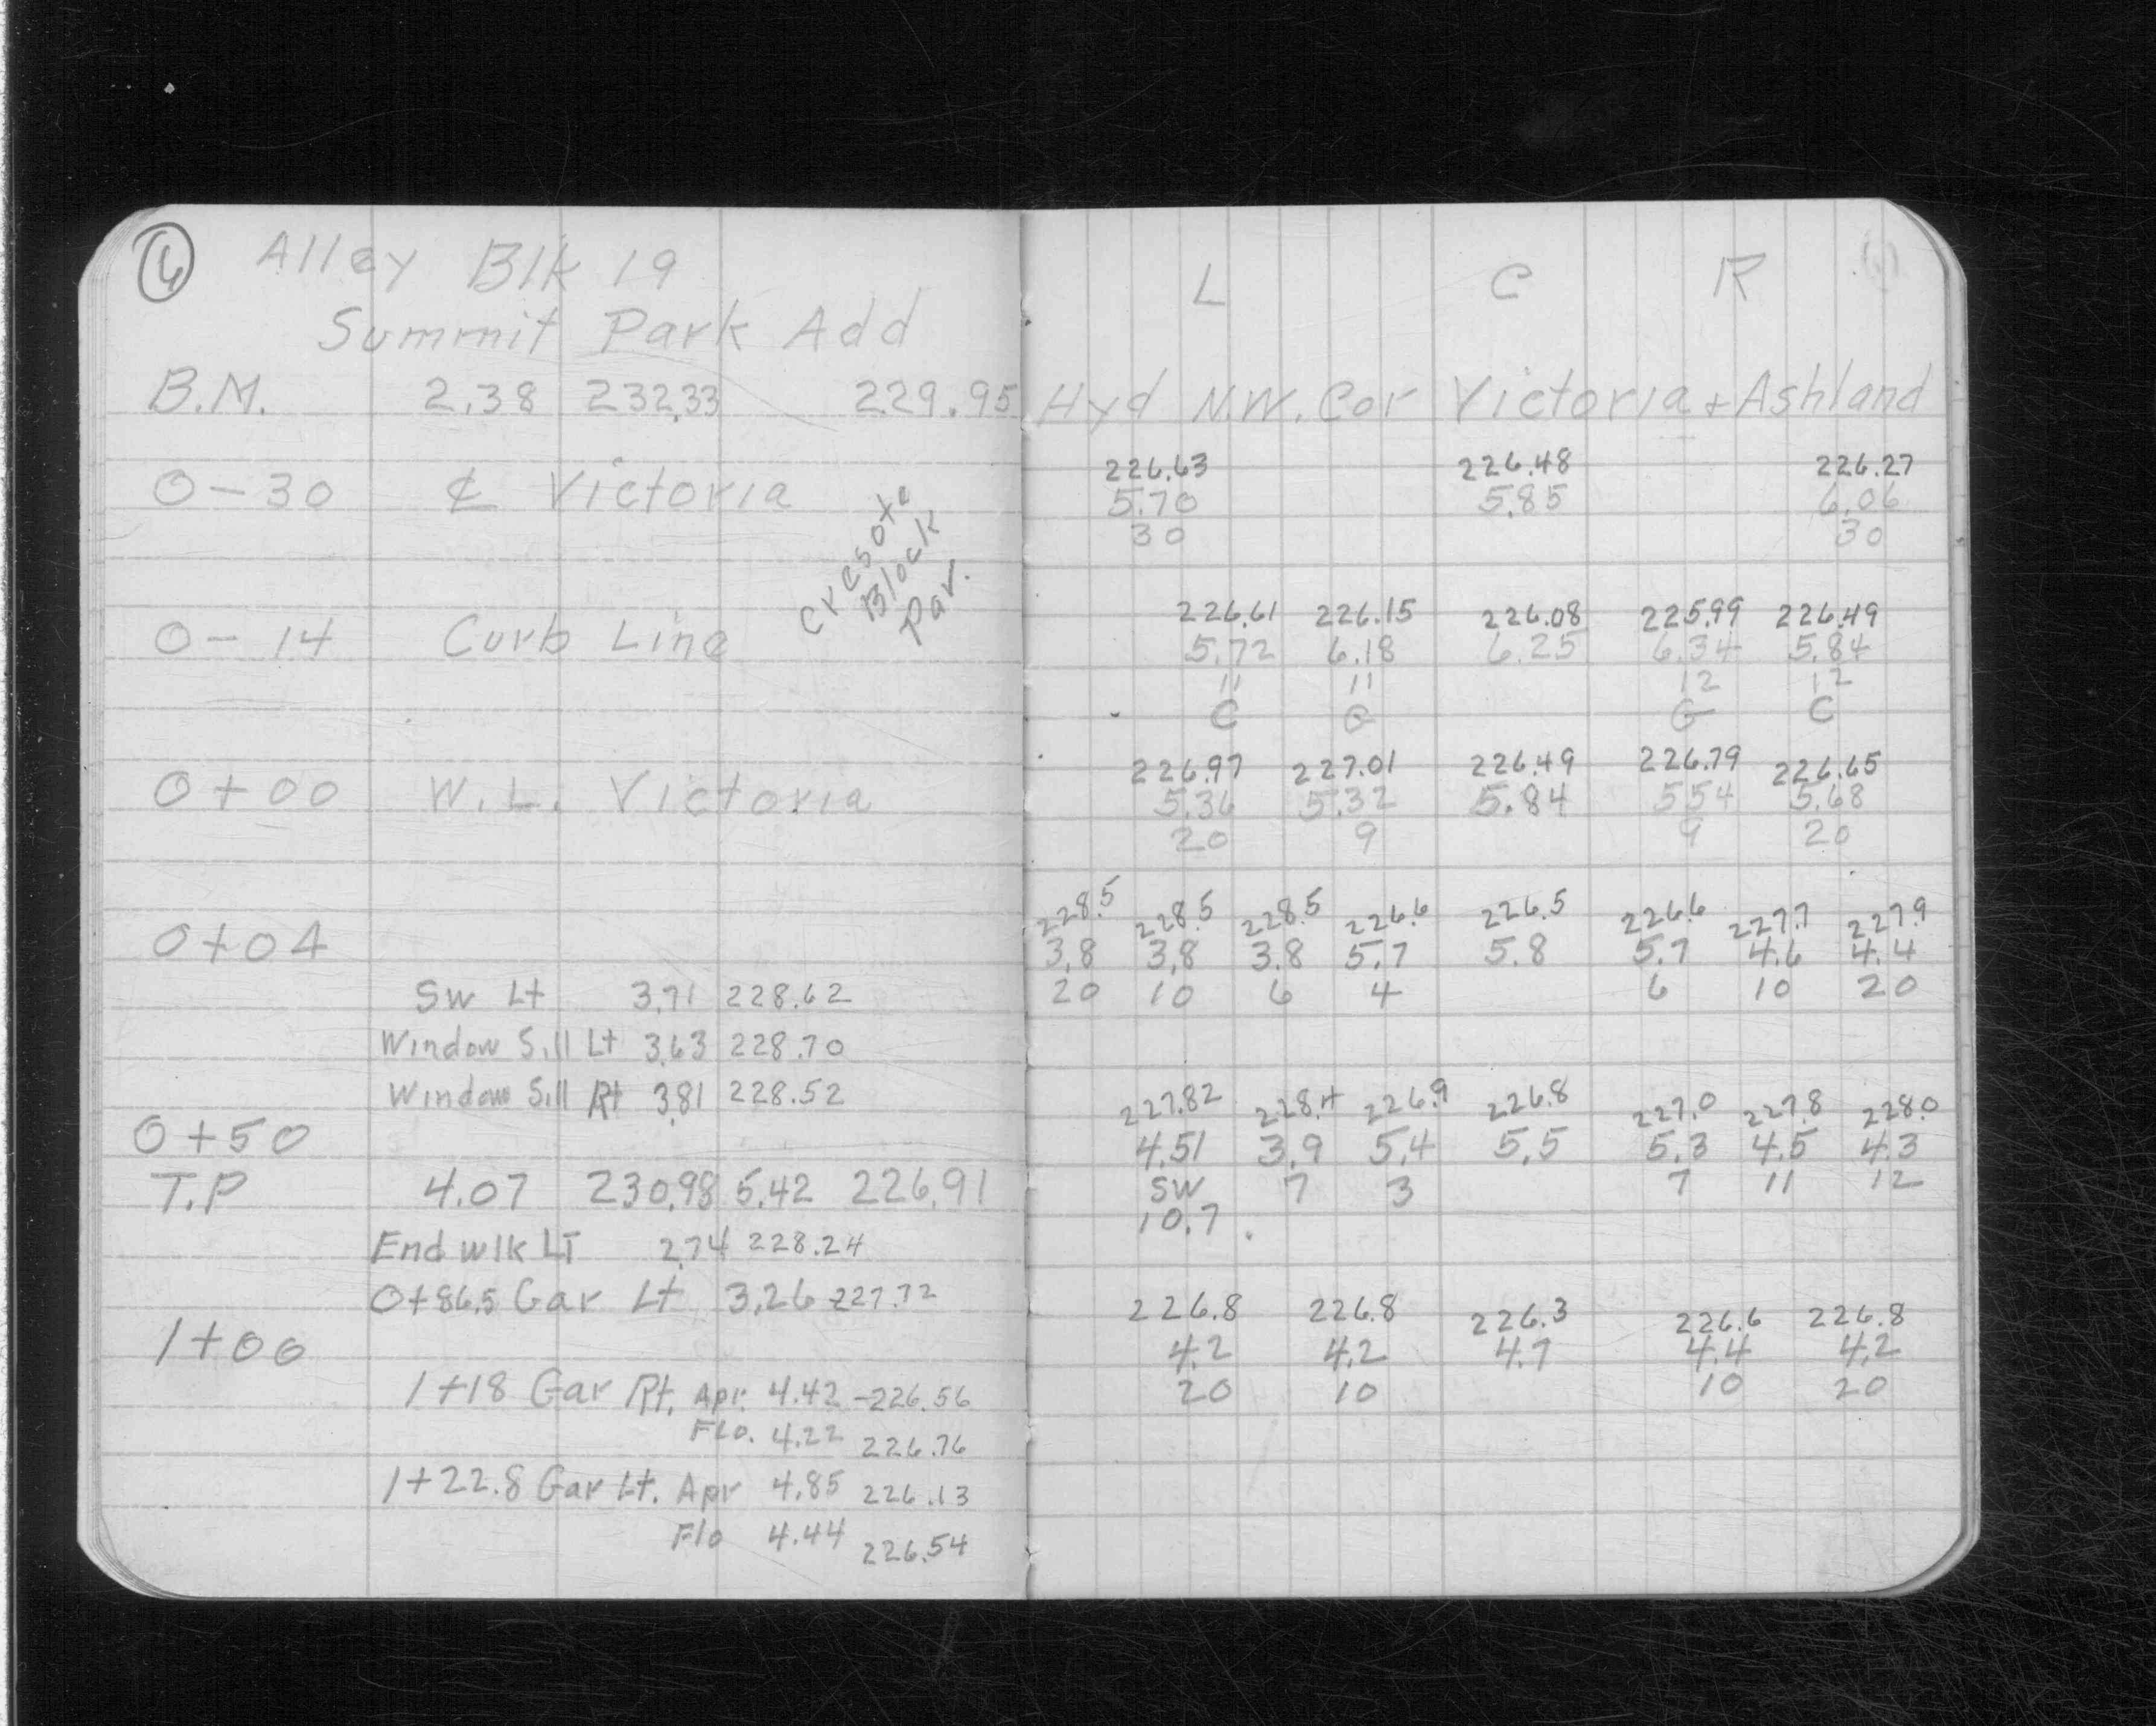 6 Alley Blk 19
Summit Park Add
B.M. 2.38 232.33 229.95
0-30 ₵ Victoria
Cresote
Block
Pav.
0-14 Curb Line
0+00 W.L. Victoria
0+04
SW Lt 3.71 228.62
Window Sill Lt 3.63 228.70
Window Sill Rt 3.81 228.52
0+50
T.P 4.07 230.98 5.42 226.91
End wlk LT 2.74 228.24
0+86.5 Gar Lt 3.26 227.72
1+00
1+18 Gar Rt. Apr. 4.42 -226.56
Flo. 4.22 226.76
1+22.8 Gar Lt. Apr 4.85 226.13
Flo 4.44 226.54
L C R
Hyd N.W. Cor Victoria + Ashland
226.63 226.48 226.27
5.70 5.85 6.06
30 30
226.61 226.15 226.08 225.99 226.49
5.72 6.18 6.25 6.34 5.84
11 11 12 12
C G G C
226.97 227.01 226.49 226.79 226.65
5.36 5.32 5.84 5.54 5.68
20 9 9 20
228.5 228.5 228.5 226.6 226.5 226.6 227.7 227.9
3.8 3.8 3.8 5.7 5.8 5.7 4.6 4.4
20 10 6 4 6 10 20
227.82 228.4 226.9 226.8 227.0 227.8 228.0
4.51 3.9 5.4 5.5 5.3 4.5 4.3
SW 7 3 7 11 12
10.7
226.8 226.8 226.3 226.6 226.8
4.2 4.2 4.7 4.4 4.2
20 10 10 20